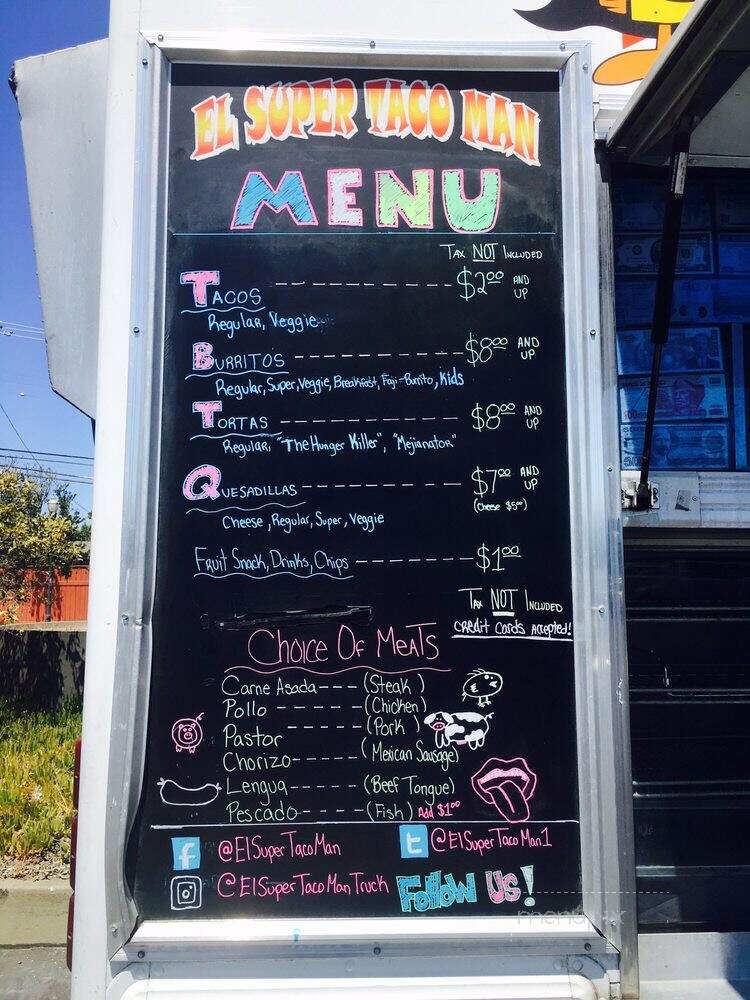 EL SUPER TACO MAN
MENU
TAX NOT INCLUDED
TACOS ---------------- $2.00 AND UP
Regular, Veggie
BURRITOS ------------- $8.00 AND UP
Regular, Super, Veggie, Breakfast, Faji-Burrito, Kids
TORTAS --------------- $8.00 AND UP
Regular, "The Hunger Killer", "Mejianator"
QUESADILLAS ---------- $7.00 AND UP
(cheese $5.00)
Cheese, Regular, Super, Veggie
Fruit Snack, Drinks, Chips --------- $1.00
TAX NOT INCLUDED
Credit Cards Accepted!
CHOICE OF MEATS
Carne Asada--- (Steak)
Pollo ----- (Chicken)
Pastor ----- (Pork)
Chorizo----- (Mexican Sausage)
Lengua----- (Beef Tongue)
Pescado----- (Fish) Add $1.00
f @ElSuperTacoMan
t @ElSuperTacoMan1
@ElSuperTacoManTruck
Follow Us!